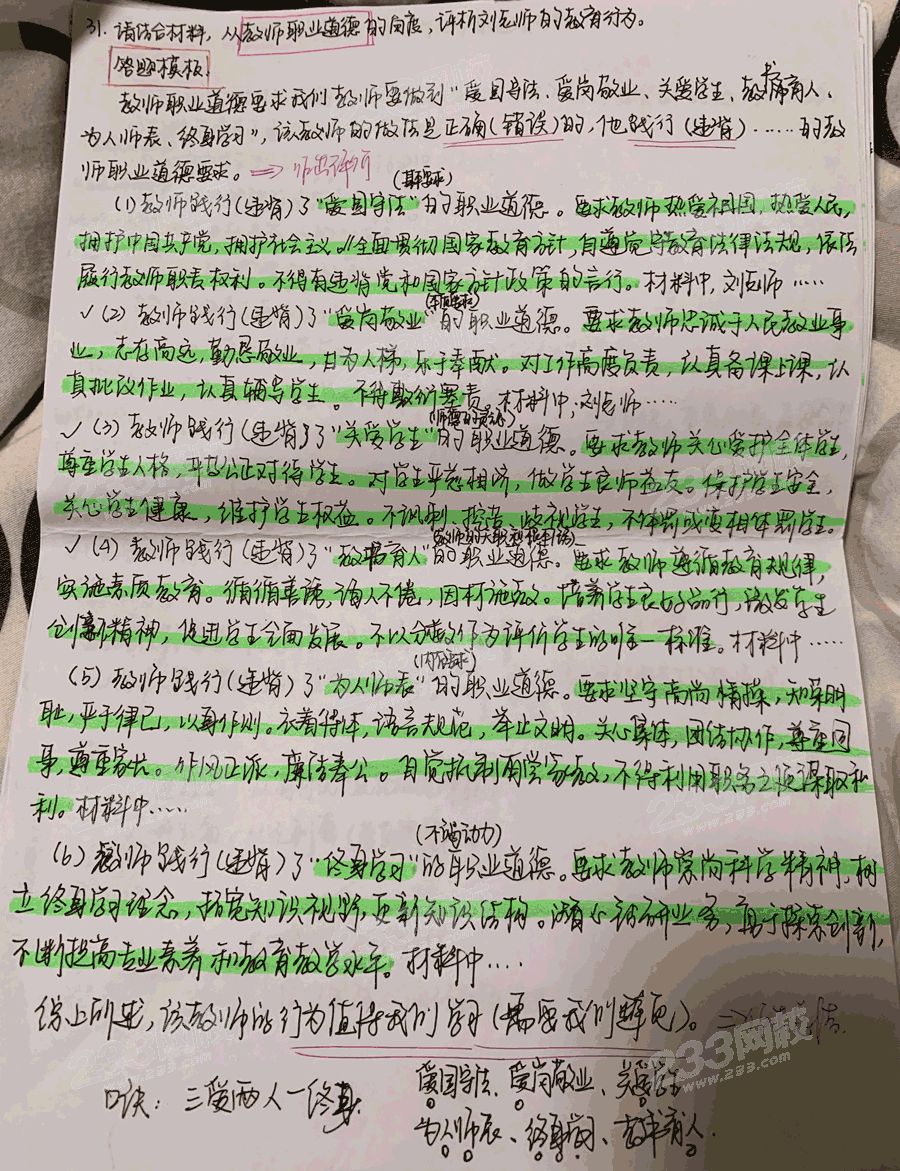 31. 请结合材料，从教师职业道德的角度，评析刘老师的教育行为。
答题模板
教师职业道德要求我们教师要做到"爱国守法、爱岗敬业、关爱学生、教书育人、
为人师表、终身学习"，该教师的做法是正确(错误)的，他践行(违背)……的教
师职业道德要求。
(基本要求)
(1)教师践行(违背)了"爱国守法"的职业道德。要求教师热爱祖国，热爱人民，
拥护中国共产党，拥护社会主义。全面贯彻国家教育方针，自觉遵守教育法律法规，依法
履行教师职责权利。不得有违背党和国家方针政策的言行。材料中，刘老师……
(本质要求)
✓(2)教师践行(违背)了"爱岗敬业"的职业道德。要求教师忠诚于人民教育事
业，志存高远，勤恳敬业，甘为人梯，乐于奉献。对工作高度负责，认真备课上课，认
真批改作业，认真辅导学生。不得敷衍塞责。材料中，刘老师……
(师德的灵魂)
✓(3)教师践行(违背)了"关爱学生"的职业道德。要求教师关心爱护全体学生，
尊重学生人格，平等公正对待学生。对学生严慈相济，做学生良师益友。保护学生安全，
关心学生健康，维护学生权益。不讽刺、挖苦、歧视学生，不体罚或变相体罚学生。
✓(4)教师践行(违背)了"教书育人"的职业道德。要求教师遵循教育规律，
实施素质教育。循循善诱，诲人不倦，因材施教。培养学生良好品行，激发学生
创新精神，促进学生全面发展。不以分数作为评价学生的唯一标准。材料中……
(内在要求)
(5)教师践行(违背)了"为人师表"的职业道德。要求坚守高尚情操，知荣明
耻，严于律己，以身作则。衣着得体，语言规范，举止文明。关心集体，团结协作，尊重同
事，尊重家长。作风正派，廉洁奉公。自觉抵制有偿家教，不得利用职务之便谋取私
利。材料中……
(不竭动力)
(6)教师践行(违背)了"终身学习"的职业道德。要求教师崇尚科学精神，树
立终身学习理念，拓宽知识视野，更新知识结构。潜心钻研业务，勇于探索创新，
不断提高专业素养和教育教学水平。材料中……
综上所述，该教师的行为值得我们学习(需要我们避免)。
口诀：三爱两人一终身
爱国守法、爱岗敬业、关爱学生
为人师表、终身学习、教书育人.
233网校
www.233.com